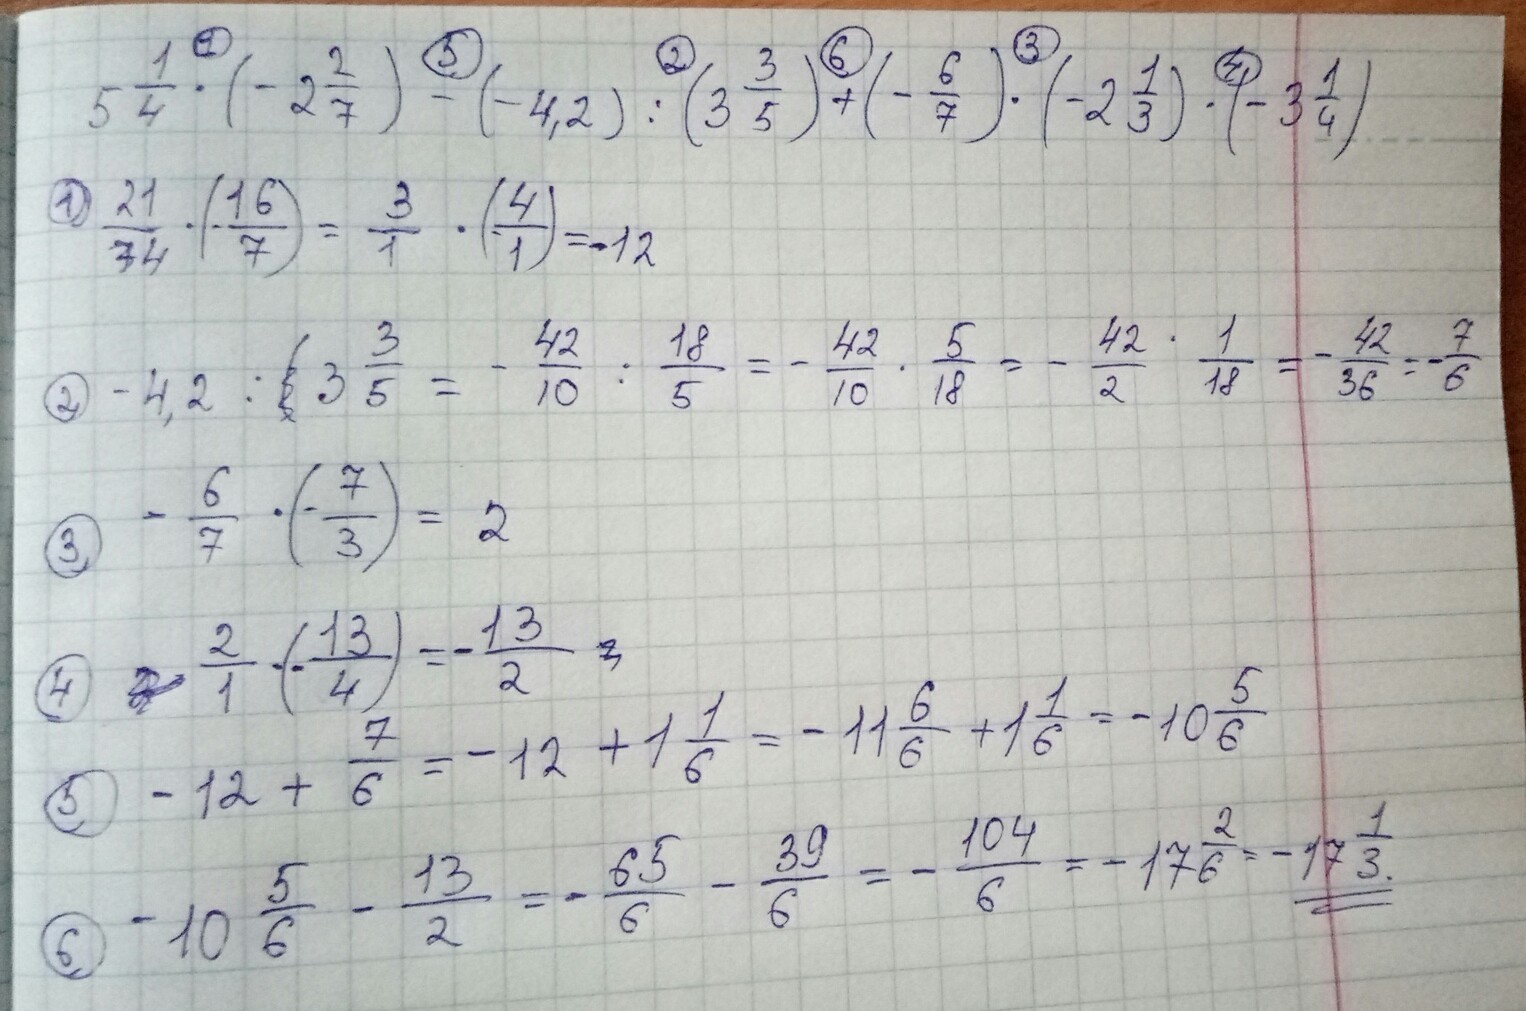 5 1/4 · (-2 2/7) - (-4,2) : (3 3/5) + (-6/7) · (-2 1/3) · (-3 1/4)
1) 21/4 · (-16/7) = 3/1 · (-4/1) = -12
2) -4,2 : 3 3/5 = -42/10 : 18/5 = -42/10 · 5/18 = -42/2 · 1/18 = -42/36 = -7/6
3) -6/7 · (-7/3) = 2
4) 2/1 · (-13/4) = -13/2
5) -12 + 7/6 = -12 + 1 1/6 = -11 6/6 + 1 1/6 = -10 5/6
6) -10 5/6 - 13/2 = -65/6 - 39/6 = -104/6 = -17 2/6 = -17 1/3.